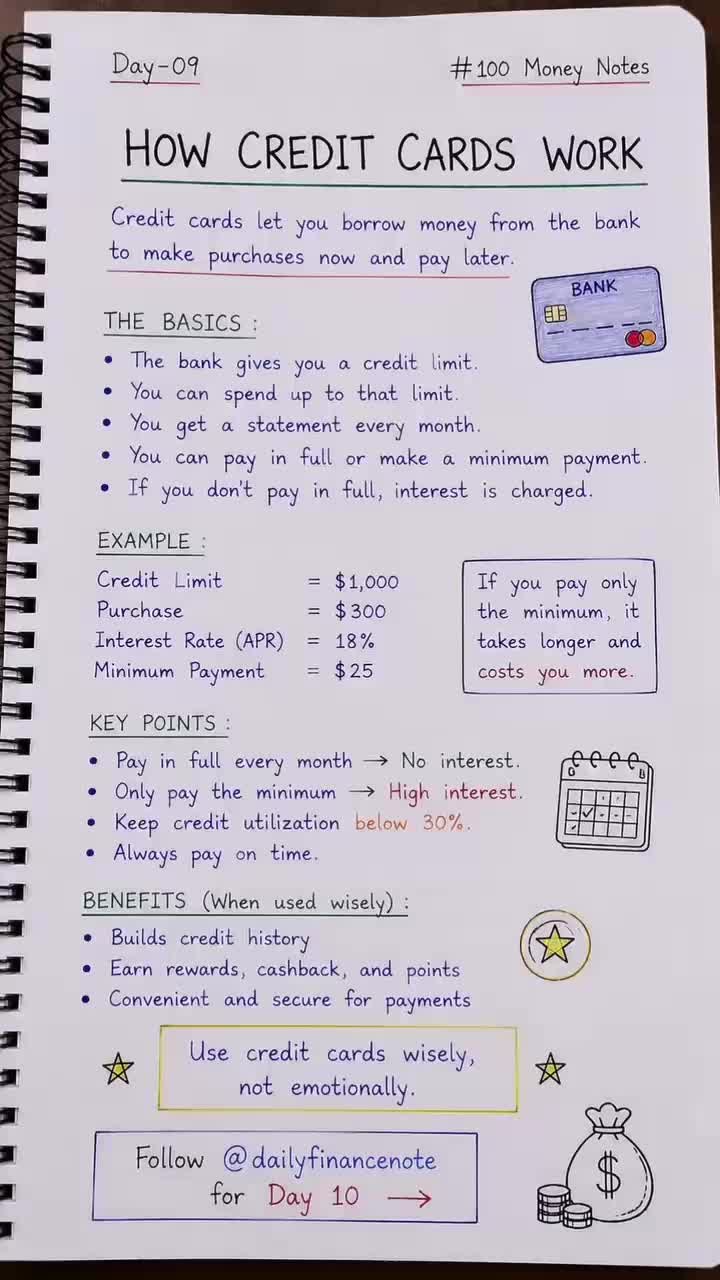 Day-09
#100 Money Notes
HOW CREDIT CARDS WORK
Credit cards let you borrow money from the bank
to make purchases now and pay later.
BANK
THE BASICS :
• The bank gives you a credit limit.
• You can spend up to that limit.
• You get a statement every month.
• You can pay in full or make a minimum payment.
• If you don't pay in full, interest is charged.
EXAMPLE :
Credit Limit = $1,000
Purchase = $300
Interest Rate (APR) = 18%
Minimum Payment = $25
If you pay only
the minimum, it
takes longer and
costs you more.
KEY POINTS :
• Pay in full every month → No interest.
• Only pay the minimum → High interest.
• Keep credit utilization below 30%.
• Always pay on time.
BENEFITS (When used wisely) :
• Builds credit history
• Earn rewards, cashback, and points
• Convenient and secure for payments
Use credit cards wisely,
not emotionally.
$
Follow @dailyfinancenote
for Day 10 →